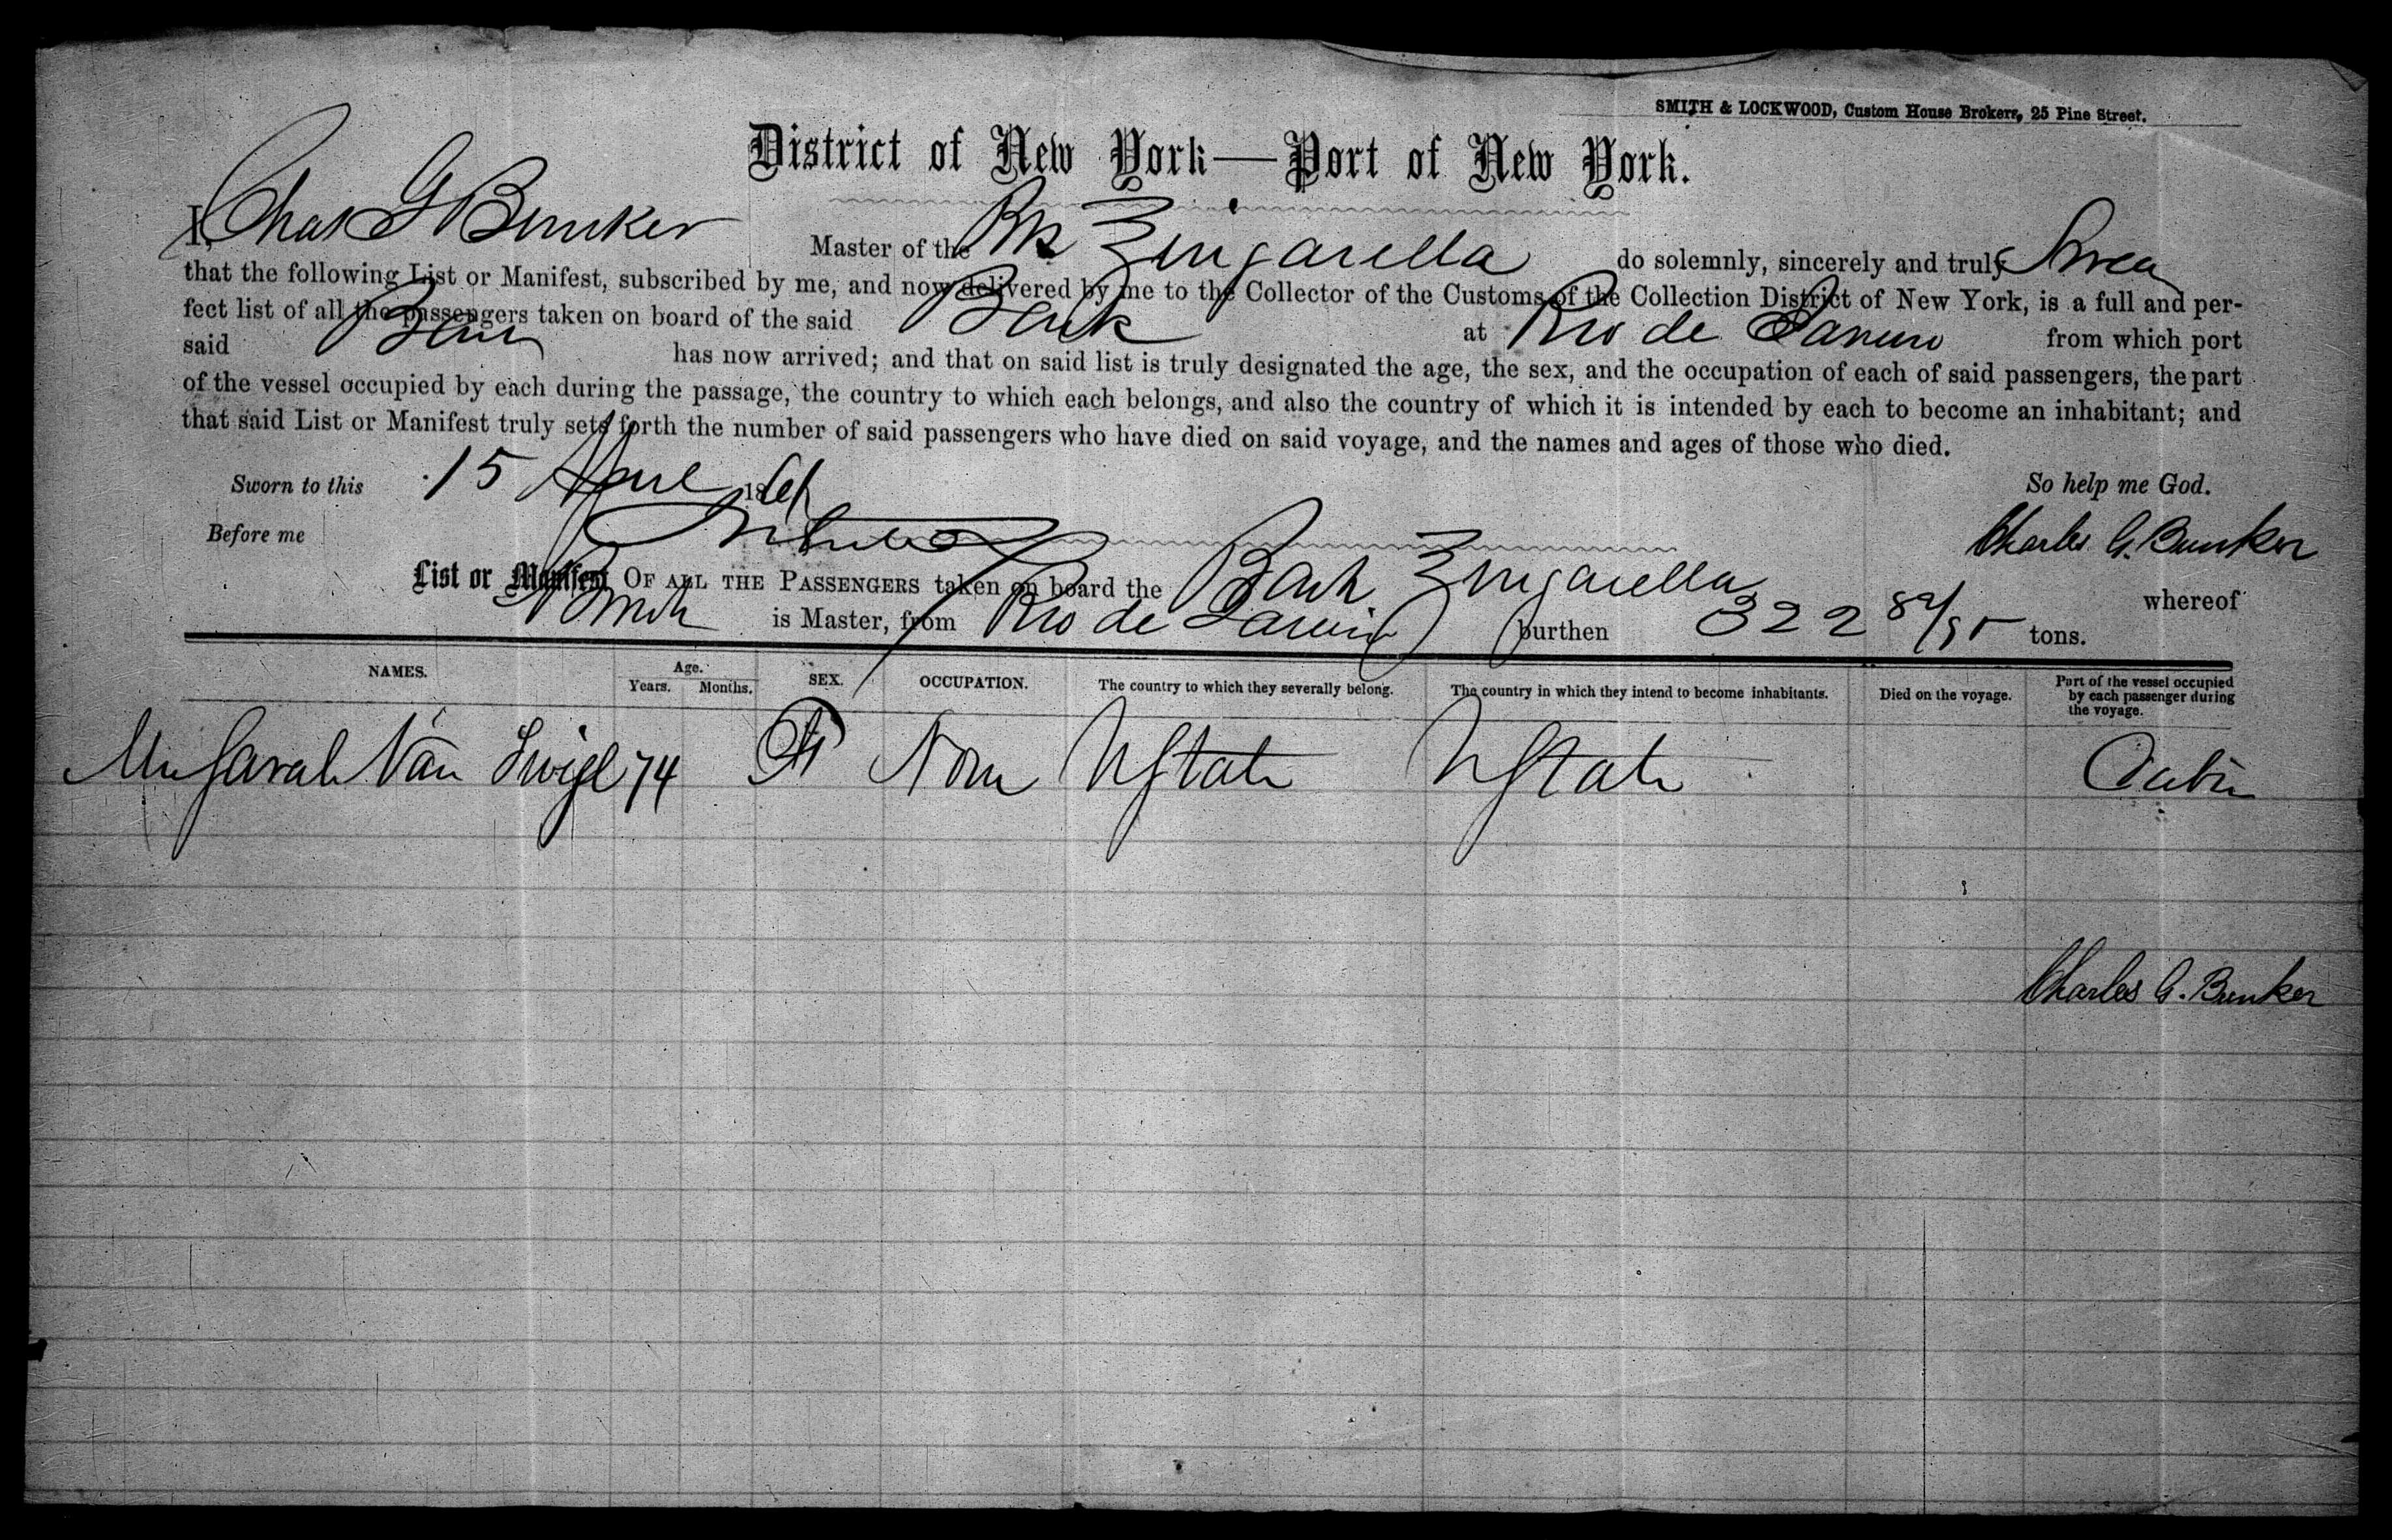 SMITH & LOCKWOOD, Custom House Brokers, 25 Pine Street.
District of New York—Port of New York.
I, Chas G Bunker Master of the Bk Zingarella do solemnly, sincerely and truly Swear
that the following List or Manifest, subscribed by me, and now delivered by me to the Collector of the Customs of the Collection District of New York, is a full and per-
fect list of all the passengers taken on board of the said Bark at Rio de Janeiro from which port
said Bark has now arrived; and that on said list is truly designated the age, the sex, and the occupation of each of said passengers, the part
of the vessel occupied by each during the passage, the country to which each belongs, and also the country of which it is intended by each to become an inhabitant; and
that said List or Manifest truly sets forth the number of said passengers who have died on said voyage, and the names and ages of those who died.
Sworn to this 15 April 1861 So help me God.
Before me Charles G. Bunker
List or Manifest OF ALL THE PASSENGERS taken on board the Bark Zingarella whereof
is Master, from Rio de Janeiro burthen 322 tons.
NAMES. Age. Years. Months. SEX. OCCUPATION. The country to which they severally belong. The country in which they intend to become inhabitants. Died on the voyage. Part of the vessel occupied by each passenger during the voyage.
Sarah Van 74 F None UState UState Cabin
Charles G. Bunker